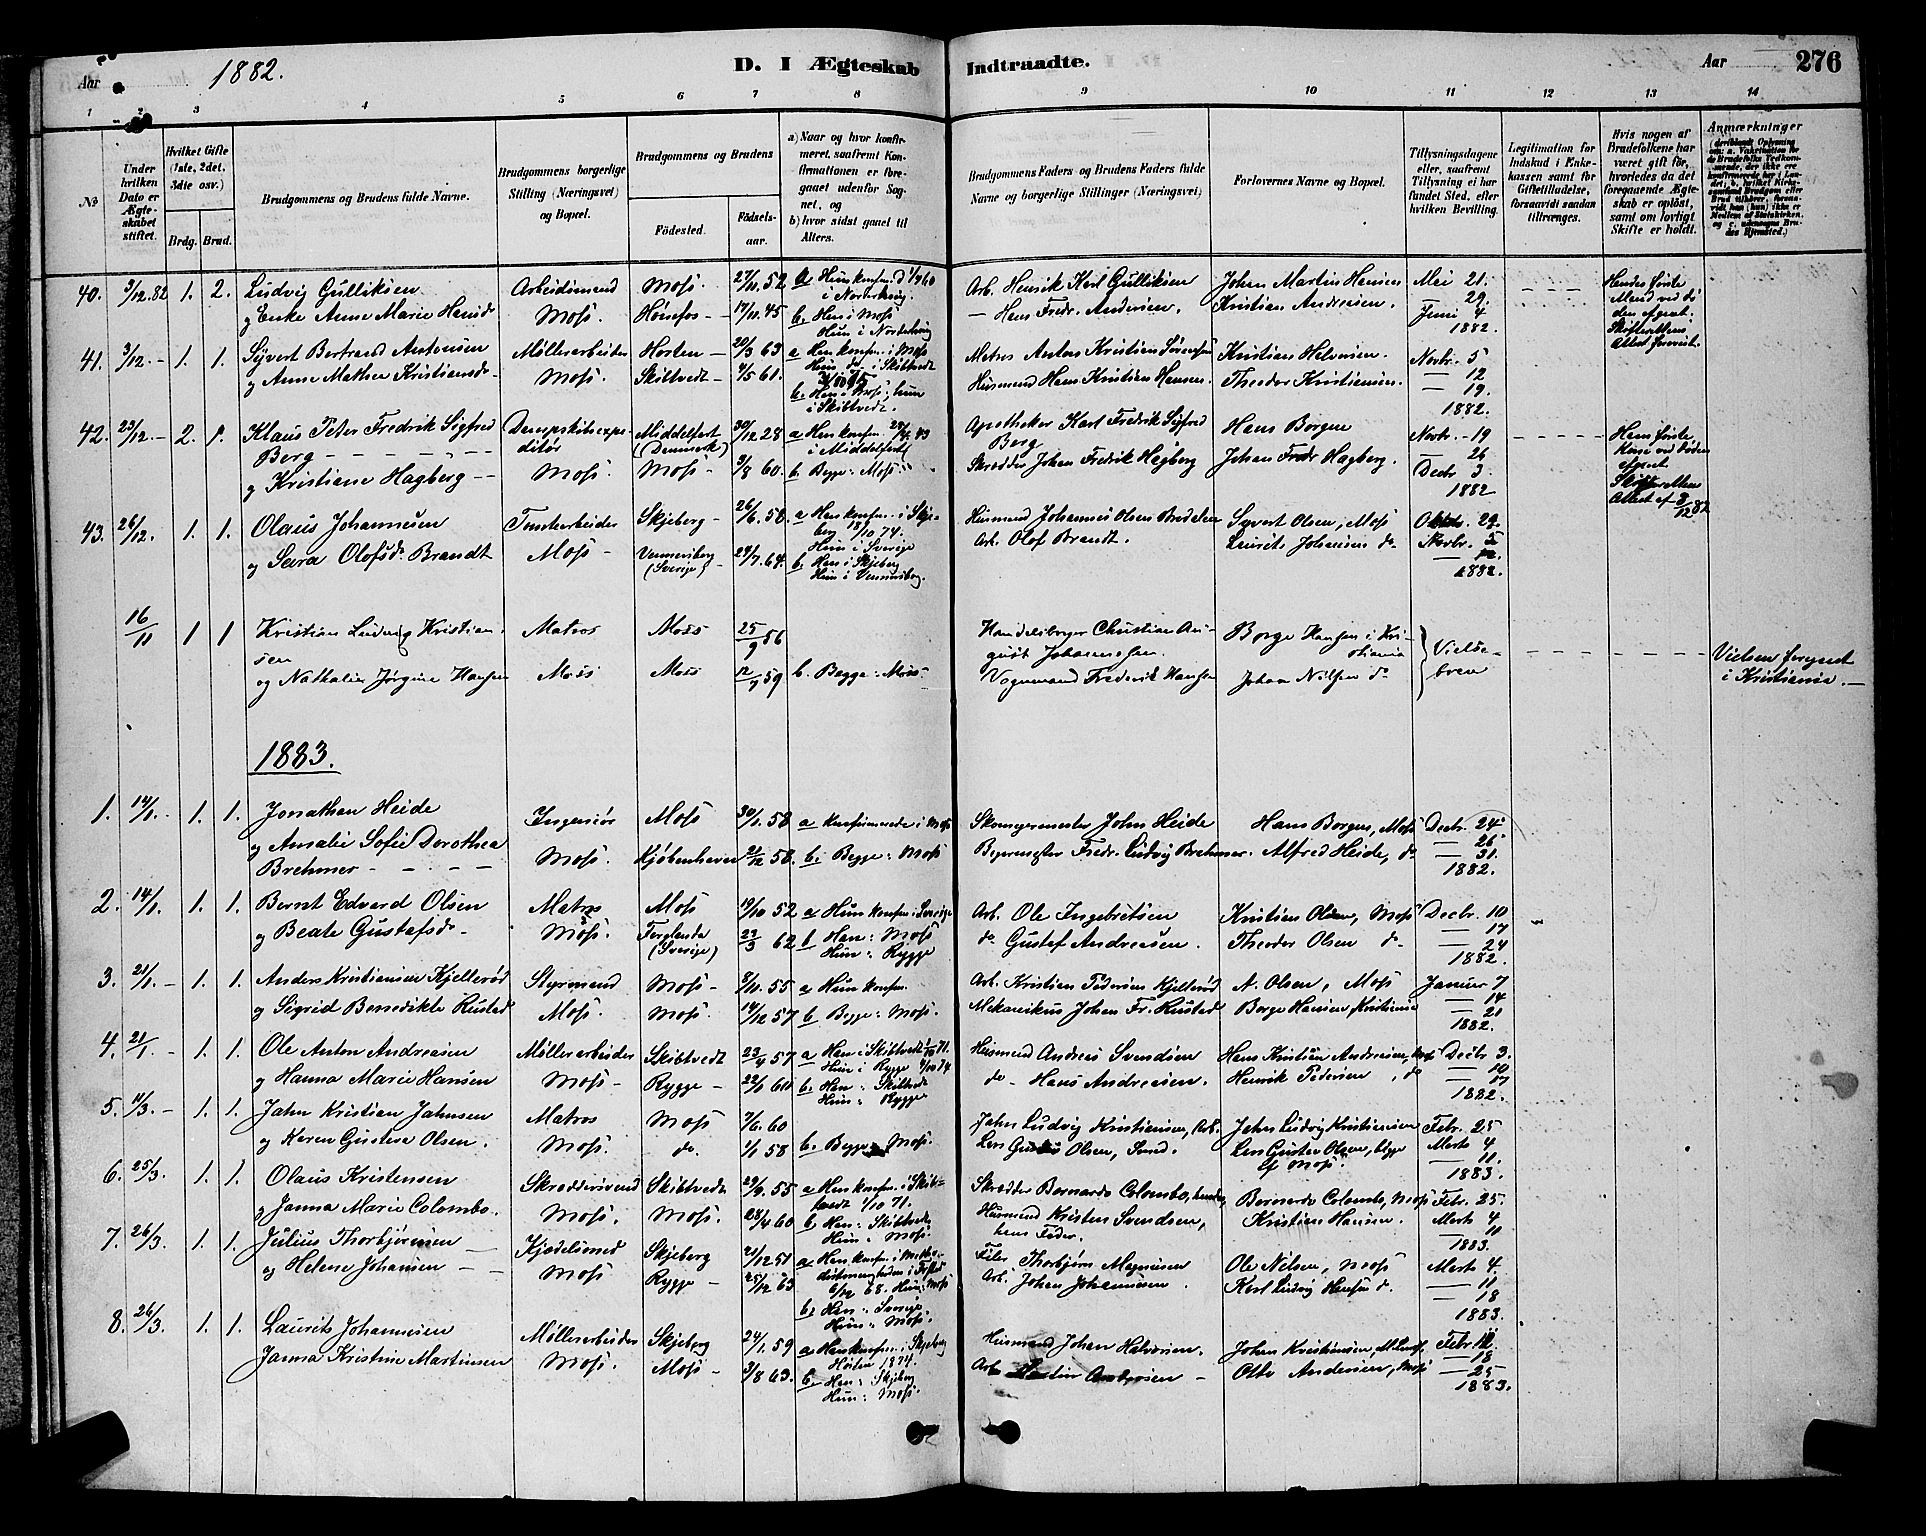 Aar 1882.
D. I Ægteskab Indtraadte.
Aar 276
1 2 3 4 5 6 7 8 9 10 11 12 13 14
No
Under hvilken Dato er Ægteskabet stiftet.
Hvilket Gifte (1ste, 2det, 3die osv.)
Brdg. Brud.
Brudgommens og Brudens fulde Navne.
Brudgommens borgerlige Stilling (Næringsvei) og Bopæl.
Brudgommens og Brudens
Födested.
Födselsaar.
a) Naar og hvor konfirmeret, saafremt Konfirmationen er foregaaet udenfor Sognet, og
b) hvor sidst gaaet til Alters.
Brudgommens Faders og Brudens Faders fulde Navne og borgerlige Stillinger (Næringsvei)
Forlovernes Navne og Bopæl.
Tillysningsdagene eller, saafremt Tillysning ei har fundet Sted, efter hvilken Bevilling.
Legitimation for Indskud i Enkekassen samt for Giftetilladelse, forsaavidt saadan tiltrænges.
Hvis nogen af Brudefolkene har været gift før, hvorledes da det foregaaende Ægteskab er opløst, samt om lovligt Skifte er holdt.
Anmærkninger
40. 3/12.82 1. 2. Ludvig Gulliksen Arbeidsmand Moss. 27/10.52 a Hun konf. i Norderhoug Arb. Henrik Karl Gulliksen Johan Martin Hansen Mai 21.
og Enke Anne Marie Hansd. Moss. Hønefos 17/11.45 b. Han i Moss Hun i Norderhoug — Hans Fredr. Andersen. Kristian Andersen. — 29 Juni 4 1882.
Hendes første Mand ved Døden Afgaaet. Skifterettens Attest forevist.
41. 3/12 - 1. 1. Syvert Bertrand Antonsen Møllerarbeider Horten 20/3 63 a Han konf. i Moss Hun do. i Skibtvedt Matros Anton Kristian Sørensen Kristian Halvorsen. Novbr. 5
og Anne Mathea Kristiansd. Moss. Skibtvedt 4/5 61. b. Han i Moss, hun i Skibtvedt. Husmand Hans Kristian Hansen. Theodor Kristiansen. — 12 — 19. 1882.
42. 23/12. - 2. 1. Klaus Peter Fredrik Sigfred Berg Dampskibsexpeditör Middelfart (Danmark) 30/12 28 a Han konf. 43 i Middelfart Apotheker Karl Fredrik Sigfred Berg Hans Borgen Novbr. 19
og Kristiane Hagberg Moss. Moss 3/8 60. b. Begge: Moss. Skredder Johan Fredrik Hagberg Johan Fredr Hagberg. — 26 Decbr 3. 1882
Hans første Kone ved Døden afgaaet Skifterettens Attest af 8/12 82
43. 26/12. 1. 1. Olaus Johannesen Tomtarbeider Skjeberg 26/6.58. a Han konf. i Skjeberg 18/10 74. Hun i Sverige Husmand Johannes Olsen Syvert Olsen, Moss Oktbr. 29.
og Sara Olofsd. Brandt Moss - Vennersborg (Sverige) 29/7.64. b. Han i Skjeberg Hun i Vennersborg. Arb. Olof Brandt. Laurits Johansen do Novbr. 5 — 12. 1882.
16/11 1 1 Kristian Ludvig Kristiansen Matros Moss 25/9 56 Handelsborger Christian August Johannesen. Borge Hansen i Kristiania Vielsebrev Vielsen foregaaet i Kristiania.
og Nathalie Jørgine Hansen Moss Moss 12/7 59 b. Begge: Moss. Vognmand Frederik Hansen Johan Nilssen do
1883.
1. 14/1. - 1. 1. Jonathan Heide Ingeniør Moss 30/1.58 a konfirmerede i Moss John Heide Hans Borgen, Moss Decbr. 24
og Amalie Sofie Dorothea Brehmer Moss. Kjøbenhavn 21/12 58. b. Begge: Moss Fredr. Ludvig Brehmer. Alfred Heide, do — 26 — 31. 1882.
2. 14/1. 1. 1. Bernt Edvard Olsen Matros Moss 19/10 52 a Hun konf. i Sverige Arb. Ole Ingebretsen Kristian Olsen, Moss Decbr. 10
og Beate Gustafsd. Moss. (Sverige) 23/3 62 b Han: Moss Hun: Rygge do Gustaf Andreasen. Theodor Olsen do — 17 — 24 1882.
3. 21/1. - 1. 1. Anders Kristiansen Kjellerød Styrmand Moss 8/11. 55 a Hun konf. Arb. Kristian Pedersen Kjellerød A. Olsen, Moss Januar 7
og Sigrid Benedikte Rustad Moss. Moss. 14/12 57 b Begge: Moss. Mekanikus Johan Fr. Rustad Borge Hansen, Kristiania — 14 — 21 1882.
4. 21/1. - 1. 1. Ole Anton Andreasen Møllerarbeider Skibtvedt 23/4 57 a Han i Skibtvedt 1/10 71. Hun i Rygge 4/10 74 Husmand Andreas Svendsen Hans Kristian Andreasen, Moss Decbr 3.
og Hanna Marie Hansen Moss - Rygge - 22/1 60 b. Han: Skibtvedt Hun: Rygge do - Hans Andreasen. Henrik Pedersen, do — 10 — 17 1882.
5. 11/3. - 1. 1. Jahn Kristian Jahnsen Matros Moss 7/6. 60 Jahn Ludvig Kristiansen, Arb. Jahn Ludvig Kristiansen Febr. 25
og Karen Gustava Olsen. Moss. do. 1/1 58 b. Begge: Moss. Lars Olsen, Lars Gustav Olsen, begge af Moss. Marts 4 — 11. 1883.
6. 25/3. 1. 1. Olaus Kristensen Skræddersvend Skibtvedt 29/9. 55 a Han konf. i Skibtvedt 1/10 71. Skrædder Bernardo Colombo, Bernardo Colombo, Moss Febr. 25.
og Janna Marie Colombo. Moss. Moss. 28/4 60 b Han: Skibtvedt Hun: Moss. Husmand Kristen Svendsen, hans Fader. Kristian Hansen. Marts 4 — 11 1883.
7. 26/3. 1. 1. Julius Thorbjørnsen Kjædelsmed Skjeberg 21/12 51 a Han konf. i 6/12 68. Hun: Moss Filer Thorbjørn Magnusen Ole Nelsen, Moss Marts 4.
og Helene Johansen Moss Rygge 25/12 63 b: Han: Sverige. Hun: Moss. Arb. Johan Johannesen. Karl Ludvig Hansen do. — 11 — 18 1883.
8. 26/3. 1. 1. Laurits Johannesen Møllerarbeider Skjeberg 24/1. 59 a Han konf. i Skjeberg Høsten 1874. Husmand Johan Halvorsen. Johan Kristiansen, Febr. 11
Janna Kristine Martinsen Moss. Moss 3/8 63. b. Han: Skjeberg Hun: Moss. Arb. Martin Andersen - Otto Andersen, Moss — 18 — 25 1883.